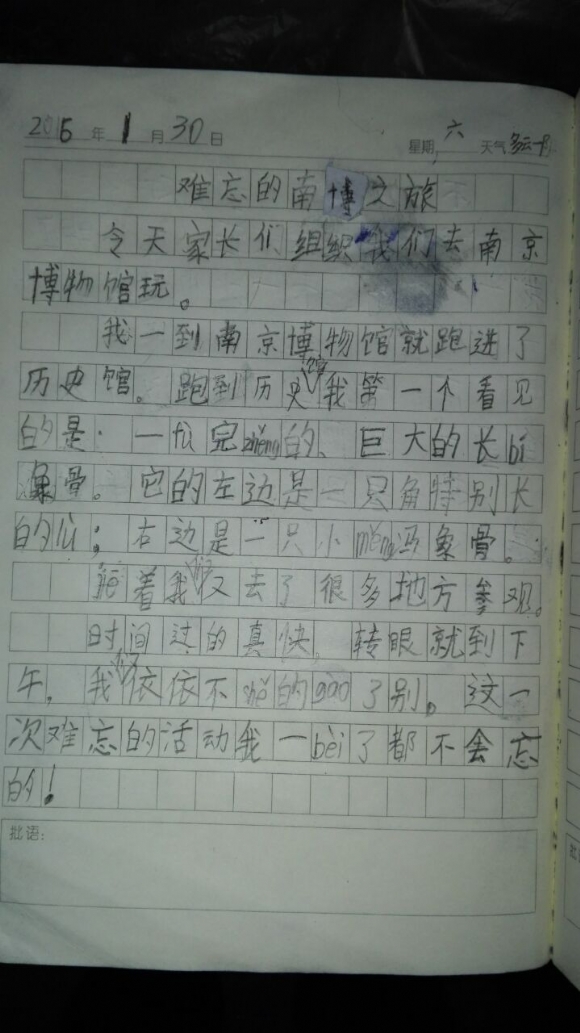 2016年1月30日 星期六 天气多云
难忘的南博之旅
今天家长们组织我们去南京
博物馆玩。
我一到南京博物馆就跑进了
历史馆。跑到历史馆我第一个看见
的是:一fù完zhěng的、巨大的长bí
象骨。它的左边是一只角特别长
的;右边是一只小měng玛象骨。
jiē着我们又去了很多地方参观。
时间过的真快,转眼就到下
午,我依依不shě的gào了别。这一
次难忘的活动我一bèi了都不会忘
的!
批语: